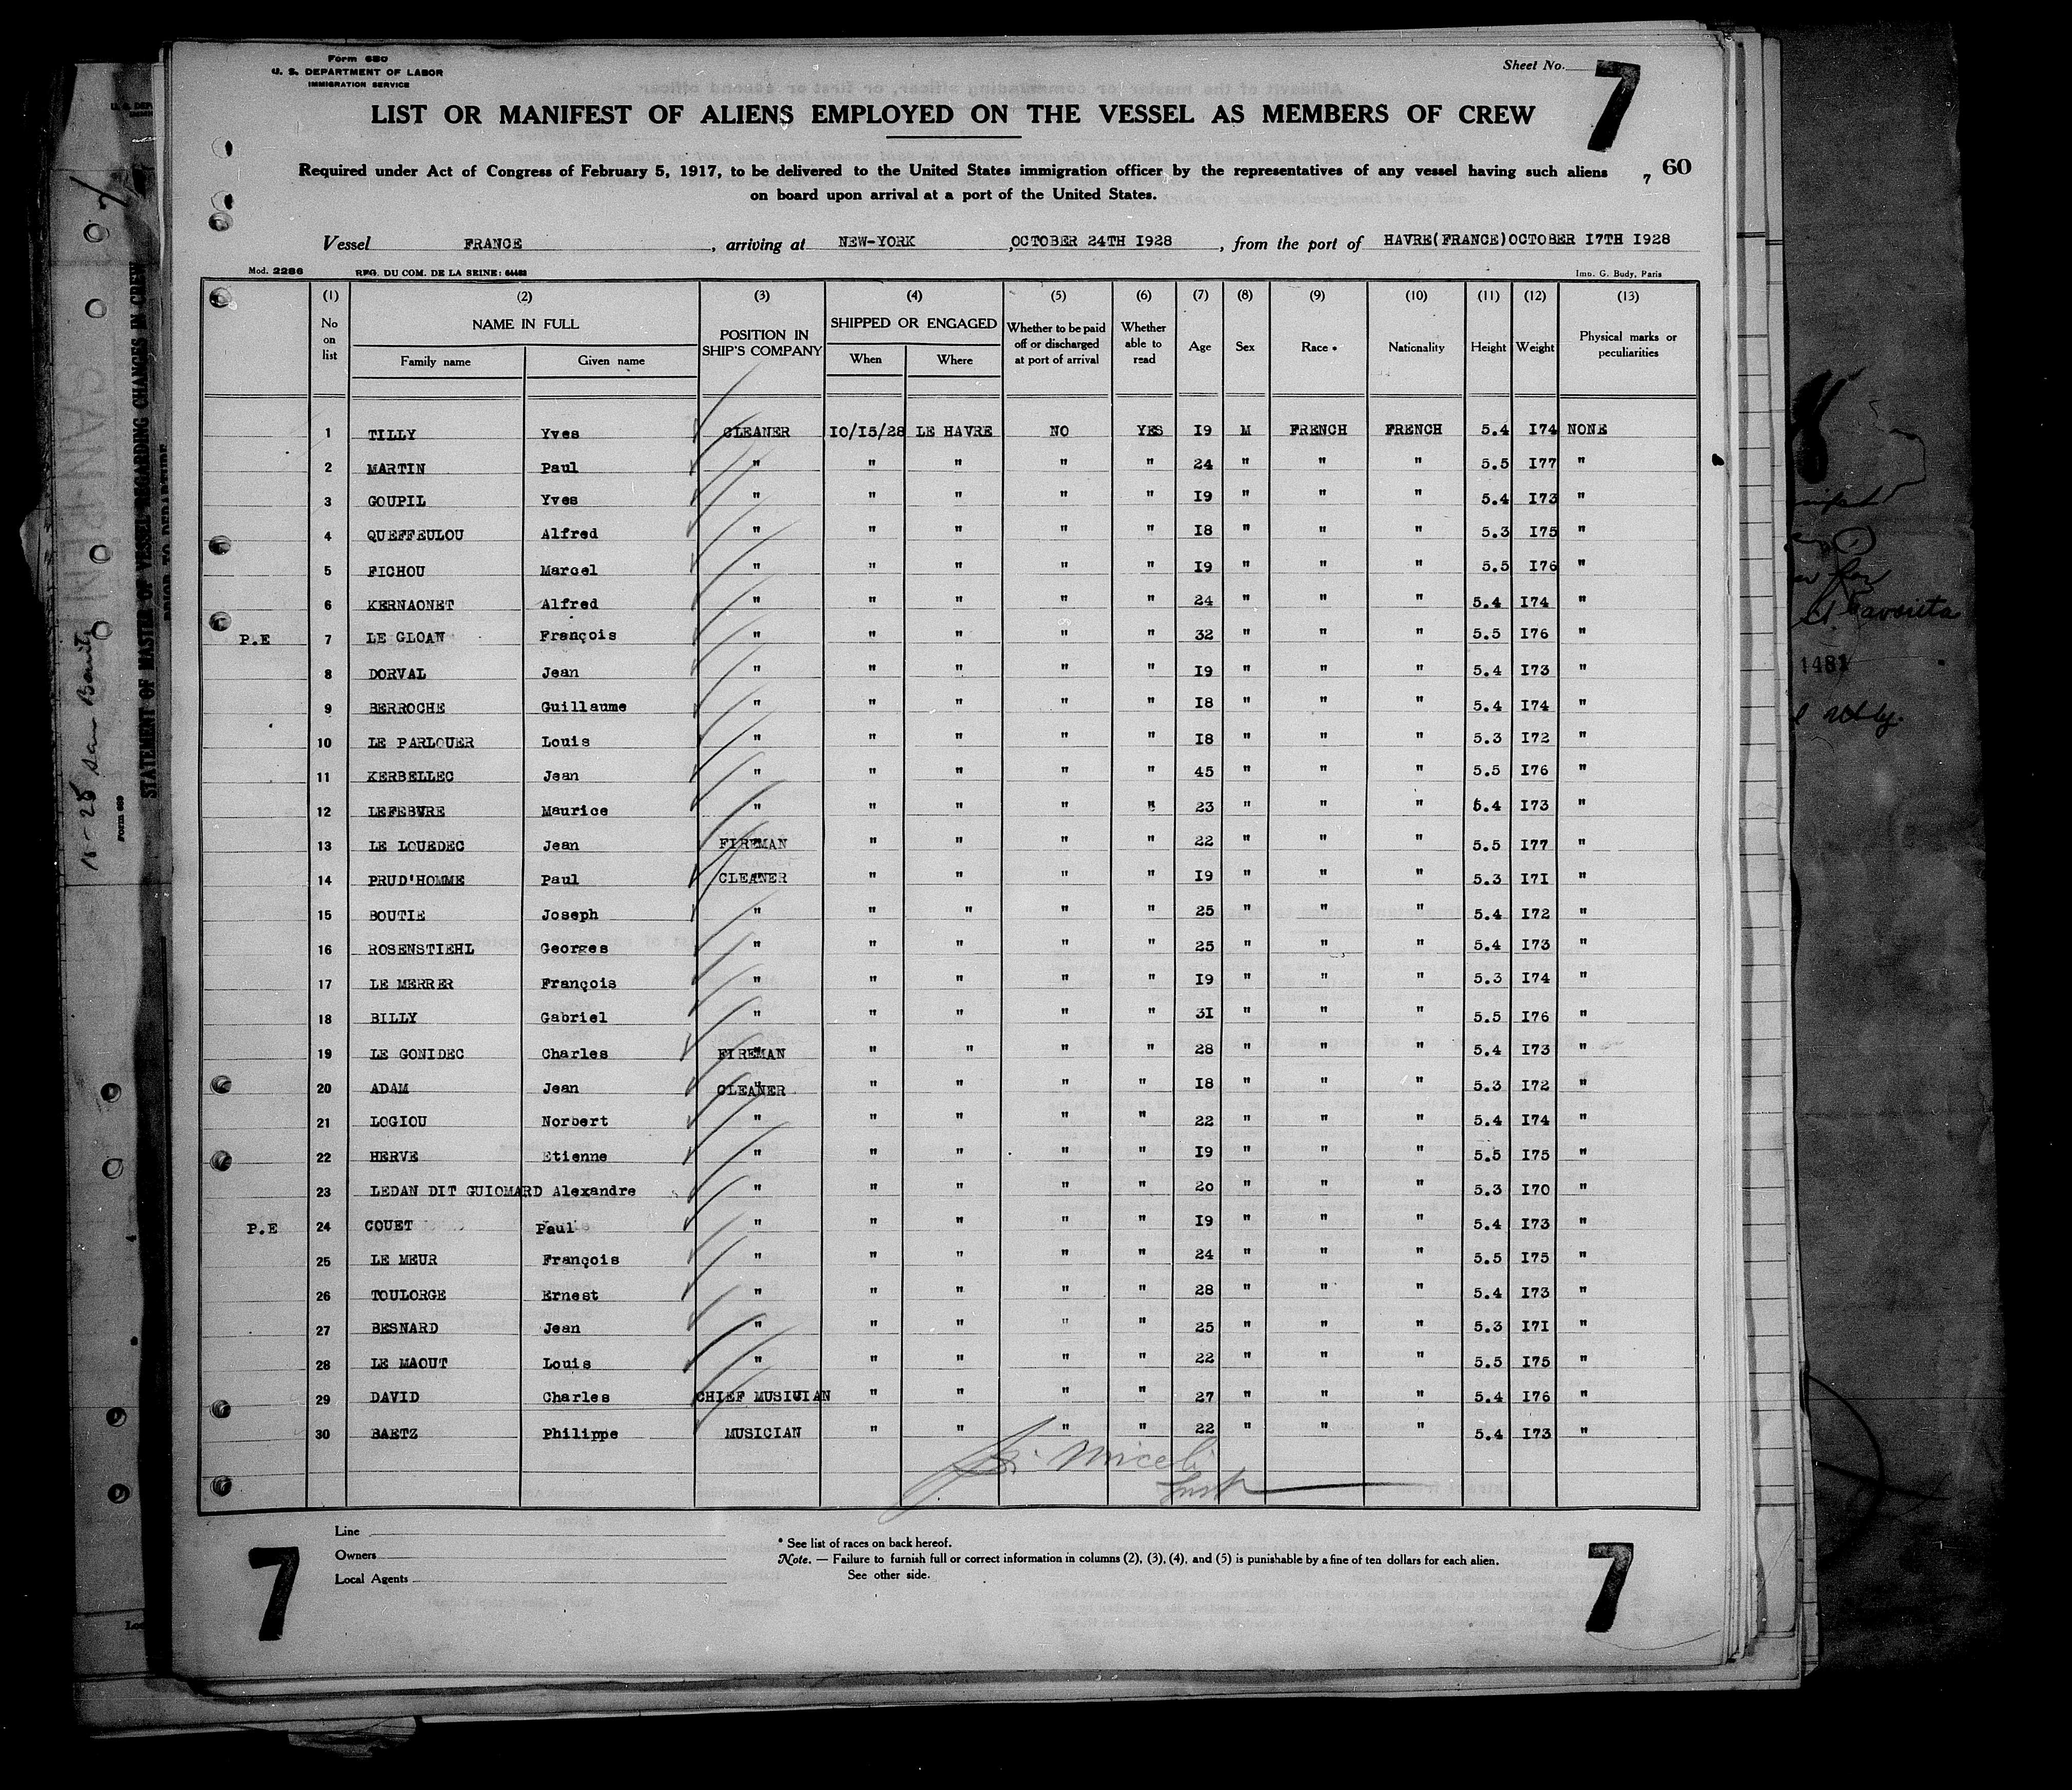 Form 680
U. S. DEPARTMENT OF LABOR
IMMIGRATION SERVICE
Sheet No. 7
LIST OR MANIFEST OF ALIENS EMPLOYED ON THE VESSEL AS MEMBERS OF CREW
Required under Act of Congress of February 5, 1917, to be delivered to the United States immigration officer by the representatives of any vessel having such aliens
on board upon arrival at a port of the United States.
7 60
Vessel FRANCE, arriving at NEW-YORK, OCTOBER 24TH 1928, from the port of HAVRE(FRANCE)OCTOBER 17TH 1928
Mod. 2286 REG. DU COM. DE LA SEINE: 64483 Imp. G. Budy, Paris
(1) (2) (3) (4) (5) (6) (7) (8) (9) (10) (11) (12) (13)
No on list NAME IN FULL Family name Given name POSITION IN SHIP'S COMPANY SHIPPED OR ENGAGED When Where Whether to be paid off or discharged at port of arrival Whether able to read Age Sex Race * Nationality Height Weight Physical marks or peculiarities
1 TILLY Yves CLEANER 10/15/28 LE HAVRE NO YES 19 M FRENCH FRENCH 5.4 174 NONE
2 MARTIN Paul " " " " " 24 " " " 5.5 177 "
3 GOUPIL Yves " " " " " 19 " " " 5.4 173 "
4 QUEFFEULOU Alfred " " " " " 18 " " " 5.3 175 "
5 FICHOU Marcel " " " " " 19 " " " 5.5 176 "
6 KERNAONET Alfred " " " " " 24 " " " 5.4 174 "
P.E 7 LE GLOAN François " " " " " 32 " " " 5.5 176 "
8 DORVAL Jean " " " " " 19 " " " 5.4 173 "
9 BERROCHE Guillaume " " " " " 18 " " " 5.4 174 "
10 LE PARLOUER Louis " " " " " 18 " " " 5.3 172 "
11 KERBELLEC Jean " " " " " 45 " " " 5.5 176 "
12 LEFEBVRE Maurice " " " " " 23 " " " 5.4 173 "
13 LE LOUEDEC Jean FIREMAN " " " " 22 " " " 5.5 177 "
14 PRUD'HOMME Paul CLEANER " " " " 19 " " " 5.3 171 "
15 BOUTIE Joseph " " " " " 25 " " " 5.4 172 "
16 ROSENSTIEHL Georges " " " " " 25 " " " 5.4 173 "
17 LE MERRER François " " " " " 19 " " " 5.3 174 "
18 BILLY Gabriel " " " " " 31 " " " 5.5 176 "
19 LE GONIDEC Charles FIREMAN " " " " 28 " " " 5.4 173 "
20 ADAM Jean CLEANER " " " " 18 " " " 5.3 172 "
21 LOGIOU Norbert " " " " " 22 " " " 5.4 174 "
22 HERVE Etienne " " " " " 19 " " " 5.5 175 "
23 LEDAN DIT GUIOMARD Alexandre " " " " " 20 " " " 5.3 170 "
P.E 24 COUET Paul " " " " " 19 " " " 5.4 173 "
25 LE MEUR François " " " " " 24 " " " 5.5 175 "
26 TOULORGE Ernest " " " " " 28 " " " 5.4 173 "
27 BESNARD Jean " " " " " 25 " " " 5.3 171 "
28 LE MAOUT Louis " " " " " 22 " " " 5.5 175 "
29 DAVID Charles CHIEF MUSICIAN " " " " 27 " " " 5.4 176 "
30 BAETZ Philippe MUSICIAN " " " " 22 " " " 5.4 173 "
Miceli
Insp
Line
Owners
Local Agents
* See list of races on back hereof.
Note. — Failure to furnish full or correct information in columns (2), (3), (4), and (5) is punishable by a fine of ten dollars for each alien.
See other side.
7
7
STATEMENT OF MASTER OF VESSEL REGARDING CHANGES IN CREW
PRIOR TO DEPARTURE
Form 689
1481